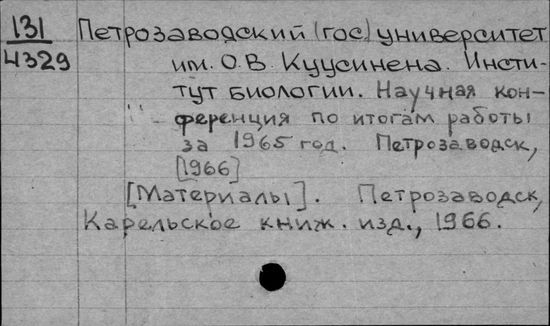 131 Петрозаводский (гос) университет
4329 им. О.В. Куусинена. Инсти-
тут биологии. Научная кон-
ференция по итогам работы
за 1965 год. Петрозаводск,
[1966]
[Материалы]. Петрозаводск,
Карельское книж. изд., 1966.